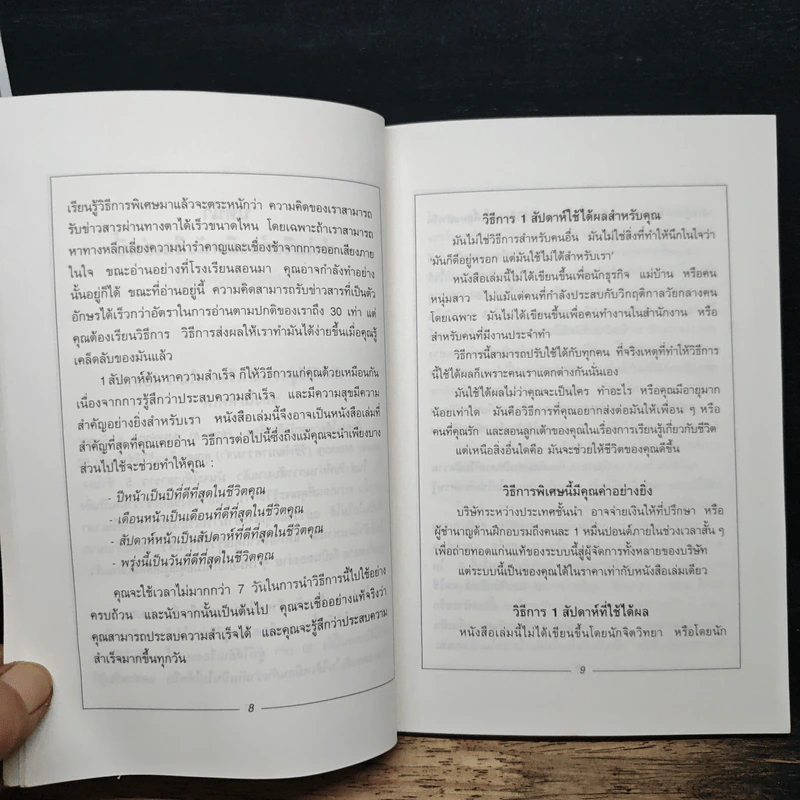 เรียนรู้วิธีการพิเศษมาแล้วจะตระหนักว่า ความคิดของเราสามารถ
รับข่าวสารผ่านทางตาได้เร็วขนาดไหน โดยเฉพาะถ้าเราสามารถ
หาทางหลีกเลี่ยงความน่ารำคาญและเชื่องช้าจากการออกเสียงภาย
ในใจ ขณะอ่านอย่างที่โรงเรียนสอนมา คุณอาจกำลังทำอย่าง
นั้นอยู่ก็ได้ ขณะที่อ่านอยู่นี้ ความคิดสามารถรับข่าวสารที่เป็นตัว
อักษรได้เร็วกว่าอัตราในการอ่านตามปกติของเราถึง 30 เท่า แต่
คุณต้องเรียนวิธีการ วิธีการส่งผลให้เราทำมันได้ง่ายขึ้นเมื่อคุณรู้
เคล็ดลับของมันแล้ว
1 สัปดาห์ค้นหาความสำเร็จ ก็ให้วิธีการแก่คุณด้วยเหมือนกัน
เนื่องจากการรู้สึกว่าประสบความสำเร็จ และมีความสุขมีความ
สำคัญอย่างยิ่งสำหรับเรา หนังสือเล่มนี้จึงอาจเป็นหนังสือเล่มที่
สำคัญที่สุดที่คุณเคยอ่าน วิธีการต่อไปนี้ซึ่งถึงแม้คุณจะนำเพียงบาง
ส่วนไปใช้จะช่วยทำให้คุณ :
- ปีหน้าเป็นปีที่ดีที่สุดในชีวิตคุณ
- เดือนหน้าเป็นเดือนที่ดีที่สุดในชีวิตคุณ
- สัปดาห์หน้าเป็นสัปดาห์ที่ดีที่สุดในชีวิตคุณ
- พรุ่งนี้เป็นวันที่ดีที่สุดในชีวิตคุณ
คุณจะใช้เวลาไม่มากกว่า 7 วันในการนำวิธีการนี้ไปใช้อย่าง
ครบถ้วน และนับจากนั้นเป็นต้นไป คุณจะเชื่ออย่างแท้จริงว่า
คุณสามารถประสบความสำเร็จได้ และคุณจะรู้สึกว่าประสบความ
สำเร็จมากขึ้นทุกวัน
8
วิธีการ 1 สัปดาห์ใช้ได้ผลสำหรับคุณ
มันไม่ใช่วิธีการสำหรับคนอื่น มันไม่ใช่สิ่งที่ทำให้นึกในใจว่า
'มันก็ดีอยู่หรอก แต่มันใช้ไม่ได้สำหรับเรา'
หนังสือเล่มนี้ไม่ได้เขียนขึ้นเพื่อนักธุรกิจ แม่บ้าน หรือคน
หนุ่มสาว ไม่แม้แต่คนที่กำลังประสบกับวิกฤติกาลวัยกลางคน
โดยเฉพาะ มันไม่ได้เขียนขึ้นเพื่อคนทำงานในสำนักงาน หรือ
สำหรับคนที่มีงานประจำทำ
วิธีการนี้สามารถปรับใช้ได้กับทุกคน ที่จริงเหตุที่ทำให้วิธีการ
นี้ใช้ได้ผลก็เพราะคนเราแตกต่างกันนั่นเอง
มันใช้ได้ผลไม่ว่าคุณจะเป็นใคร ทำอะไร หรือคุณมีอายุมาก
น้อยเท่าใด มันคือวิธีการที่คุณอยากส่งต่อมันให้เพื่อน ๆ หรือ
คนที่คุณรัก และสอนลูกเต้าของคุณในเรื่องการเรียนรู้เกี่ยวกับชีวิต
แต่เหนือสิ่งอื่นใดคือ มันจะช่วยให้ชีวิตของคุณดีขึ้น
วิธีการพิเศษนี้มีคุณค่าอย่างยิ่ง
บริษัทระหว่างประเทศชั้นนำ อาจจ่ายเงินให้ที่ปรึกษา หรือ
ผู้ชำนาญด้านฝึกอบรมถึงคนละ 1 หมื่นปอนด์ภายในช่วงเวลาสั้น ๆ
เพื่อถ่ายทอดแก่นแท้ของระบบนี้สู่ผู้จัดการทั้งหลายของบริษัท
แต่ระบบนี้เป็นของคุณได้ในราคาเท่ากับหนังสือเล่มเดียว
วิธีการ 1 สัปดาห์ที่ใช้ได้ผล
หนังสือเล่มนี้ไม่ได้เขียนขึ้นโดยนักจิตวิทยา หรือโดยนัก
9